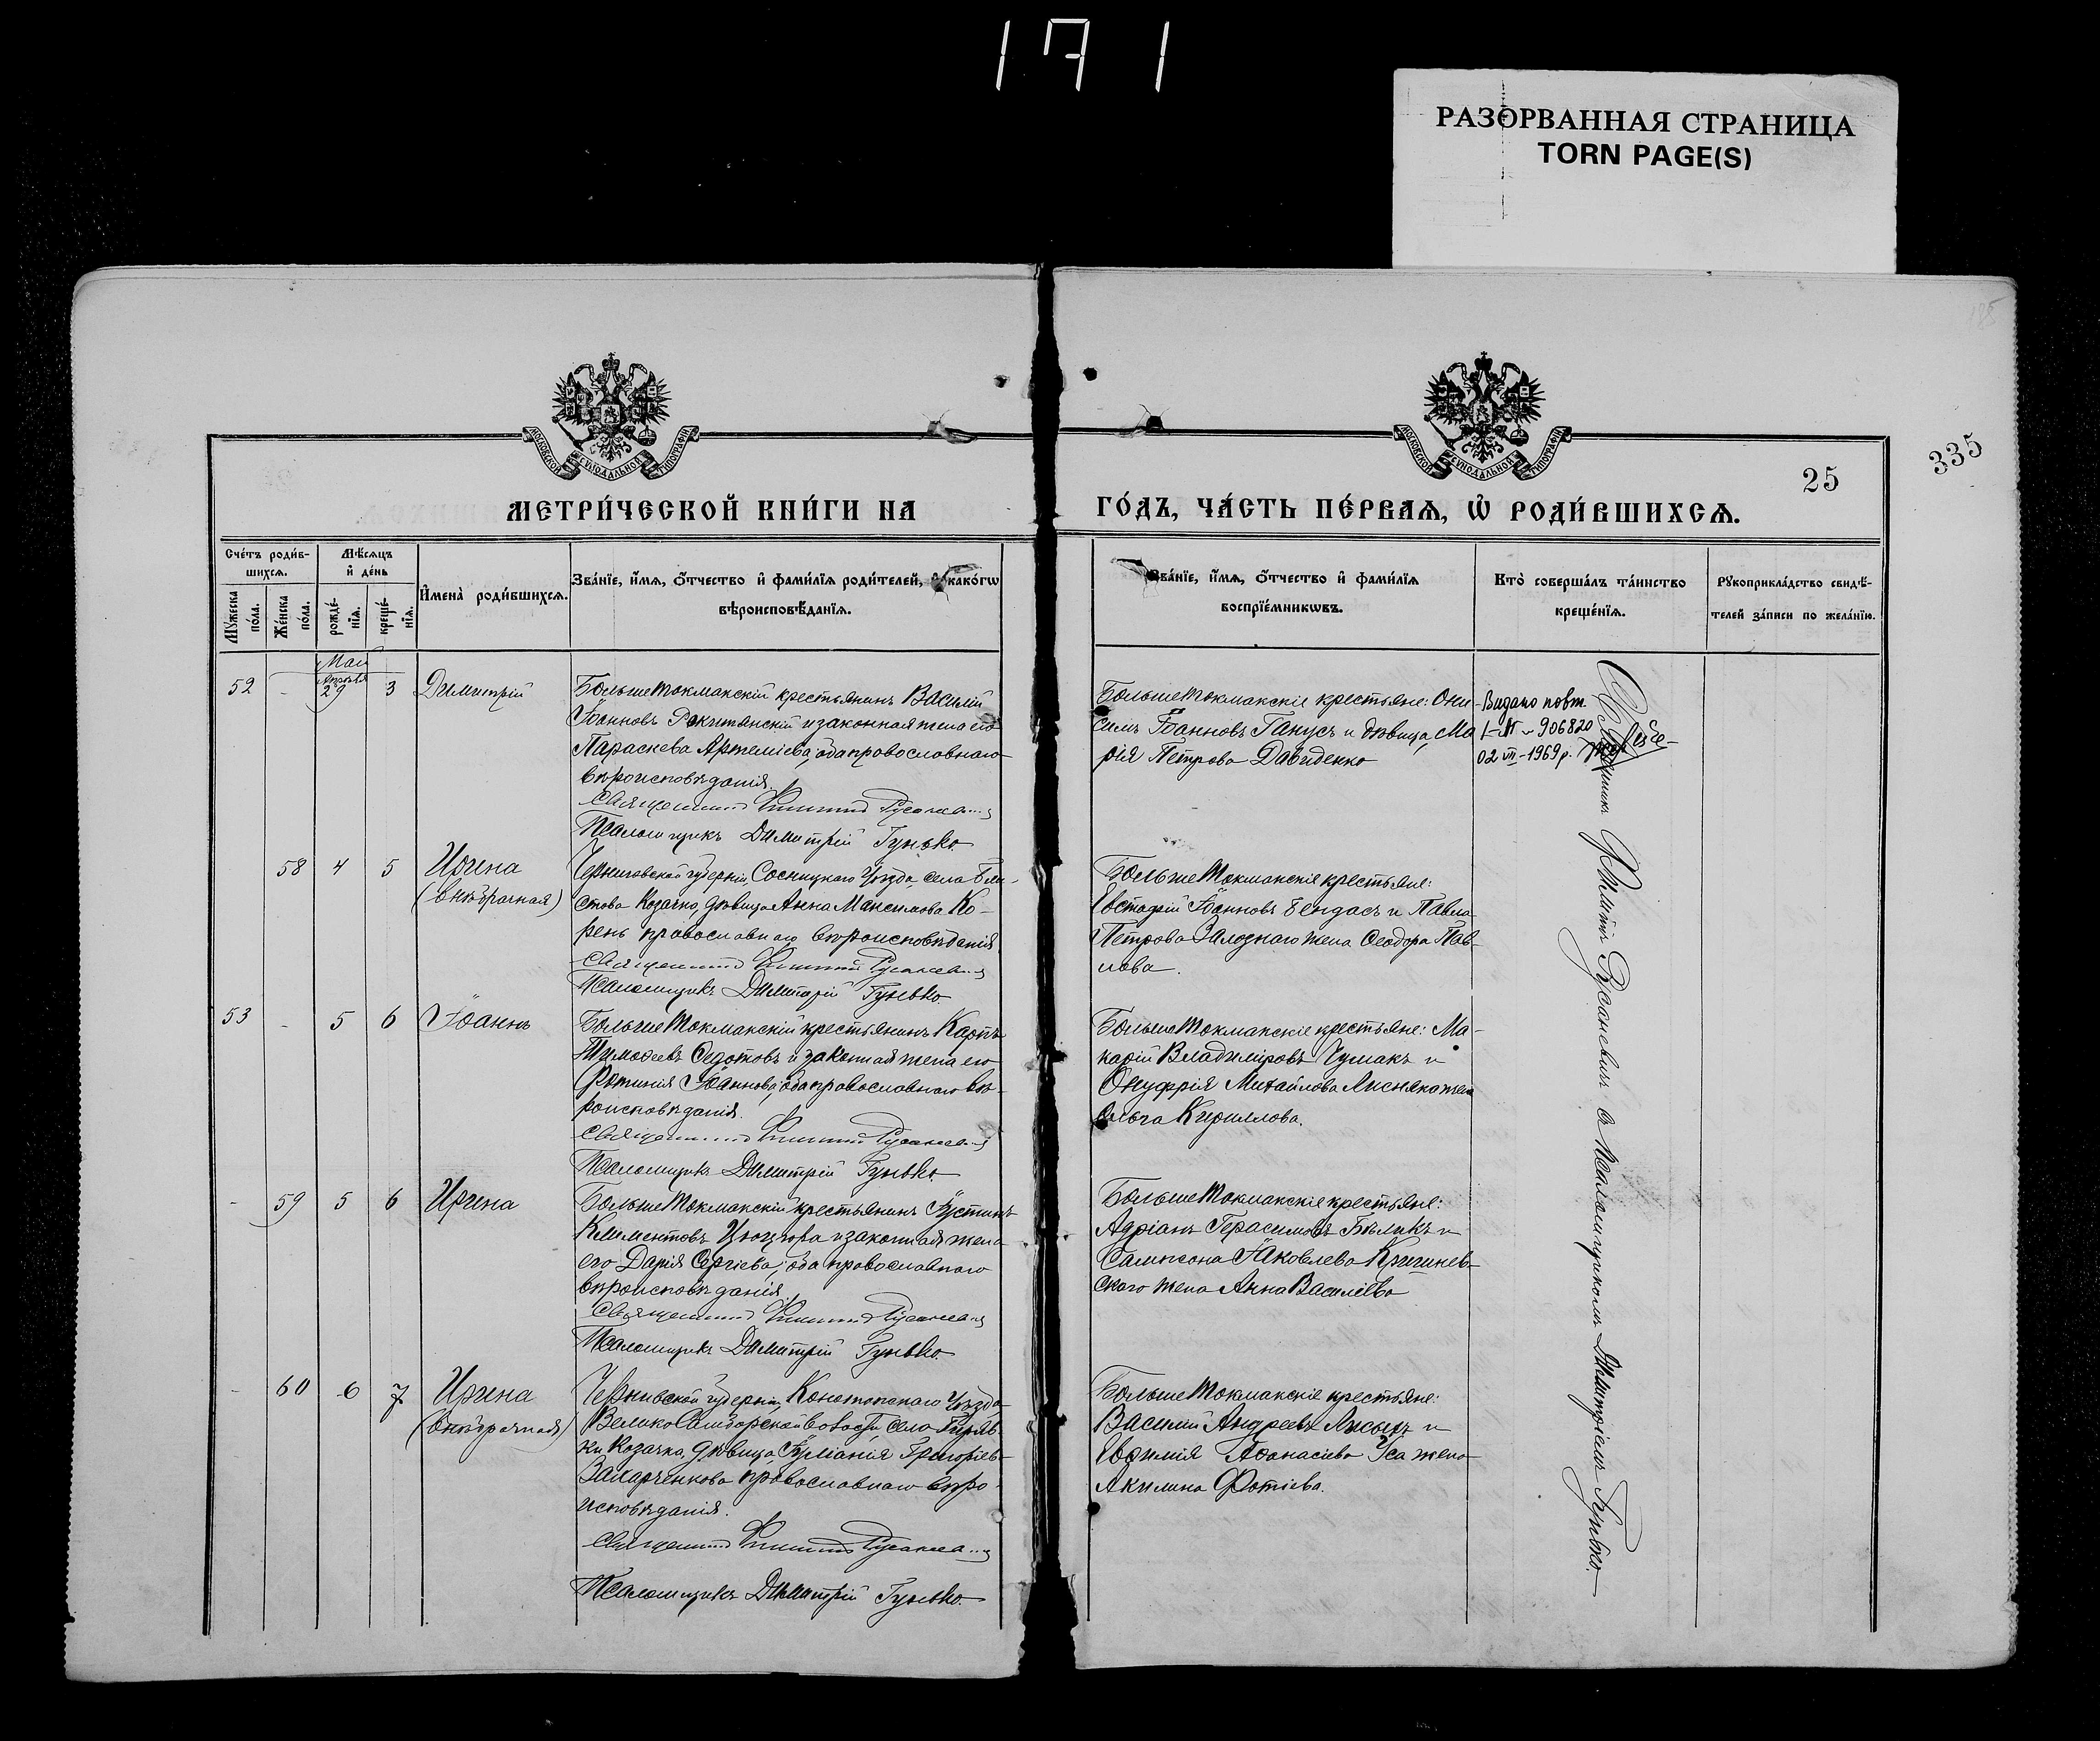 171
РАЗОРВАННАЯ СТРАНИЦА
TORN PAGE(S)
МОСКОВСКОЙ СѴНОДАЛЬНОЙ ТИПОГРАФІИ
МОСКОВСКОЙ СѴНОДАЛЬНОЙ ТИПОГРАФІИ
25
335
МЕТРИ́ЧЕСКОЙ КНИ́ГИ НА
ГО́ДЪ, ЧА́СТЬ ПЕ́РВАѦ, Ѡ҆ РОДИ́ВШИХСѦ.
Сче́тъ роди́в-
шихсѧ.
Мѣ́сѧцъ
и҆ де́нь
Мꙋ́жеска
по́ла.
Же́нска
по́ла.
рожде́-
нїѧ.
креще́-
нїѧ.
И҆мена̀ роди́вшихсѧ.
Зва́нїе, и҆́мѧ, ѻ҆́тчество и҆ фами́лїѧ роди́телей, и҆ како́гѡ
вѣроисповѣ́данїѧ.
Зва́нїе, и҆́мѧ, ѻ҆́тчество и҆ фами́лїѧ
воспрїе́мникѡвъ.
Кто̀ соверша́лъ та́инство
креще́нїѧ.
Рꙋкоприкла́дство свидѣ́-
телей за́писи по жела́нїю.
Май
Апрѣля
52 - 29 3 Димитрій
БольшеТокмакскій крестьянинъ Василій
Іоанновъ Рокитянскій и законная жена его
Параскева Артеміева, оба православнаго
вѣроисповѣданія.
Священникъ Филиппъ Русаневичъ
Псаломщикъ Димитрій Гунько.
БольшеТокмакскіе крестьяне: Они-
симъ Іоанновъ Ганусъ и дѣвица Ма
рія Петрова Давиденко
Видано повт.
906820
02 VII-1969 р.
58 4 5 Ирина
(внѣбрачная)
Черниговской губерніи, Сосницкаго уѣзда, села
стова козачка, дѣвица Анна Максимова Ко-
рень православнаго вѣроисповѣданія
Священникъ Филиппъ Русаневичъ
Псаломщикъ Димитрій Гунько.
БольшеТокмакскіе крестьяне:
Евстафій Іоанновъ Бендасъ и Павла
Петрова жена Ѳеодора Пав-
лова.
53 - 5 6 Іоаннъ
БольшеТокмакскій крестьянинъ Карпъ
Тимоѳеевъ Ѳедотовъ и законная жена его
Фотинія Іоаннова, оба православнаго вѣ-
роисповѣданія.
Священникъ Филиппъ Русаневичъ
Псаломщикъ Димитрій Гунько.
БольшеТокмакскіе крестьяне: Ма-
карій Владиміровъ Чумакъ и
Онуфрія Михайлова Лисняка жена
Ольга Кириллова.
- 59 5 6 Ирина
БольшеТокмакскій крестьянинъ Іустинъ
Климентовъ Цюцюра и законная жена
его Дарія Сергіева, оба православнаго
вѣроисповѣданія.
Священникъ Филиппъ Русаневичъ
Псаломщикъ Димитрій Гунько.
БольшеТокмакскіе крестьяне:
Адріанъ Герасимовъ Бѣликъ и
Сампсона Іаковлева Кричинев-
скаго жена Анна Василіева
- 60 6 7 Ирина
(внѣбрачная)
губерніи, Конотопскаго уѣзда
Велико Самборской волости села Гирявъ
ки козачка, дѣвица Іуліанія Григоріева
Захарченкова православнаго вѣро-
исповѣданія.
Священникъ Филиппъ Русаневичъ
Псаломщикъ Димитрій Гунько.
БольшеТокмакскіе крестьяне:
Василій Андреевъ Лысый и
Евѳимія Аѳанасіева Уса жена
Акилина Фотіева.
Священникъ Филиппъ Русаневичъ съ псаломщикомъ Димитріемъ Гунько.